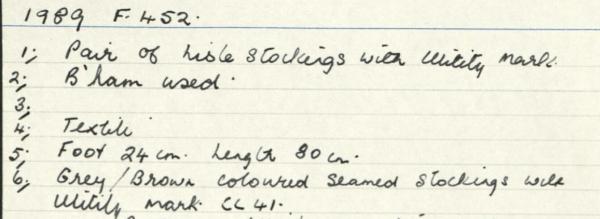 1989 F. 452.
1; Pair of Lisle Stockings with Utility Mark.
2; B'ham used.
3;
4; Textile
5; Foot 24 cm. Length 80 cm.
6; Grey/Brown coloured seamed stockings with
Utility Mark CC 41.